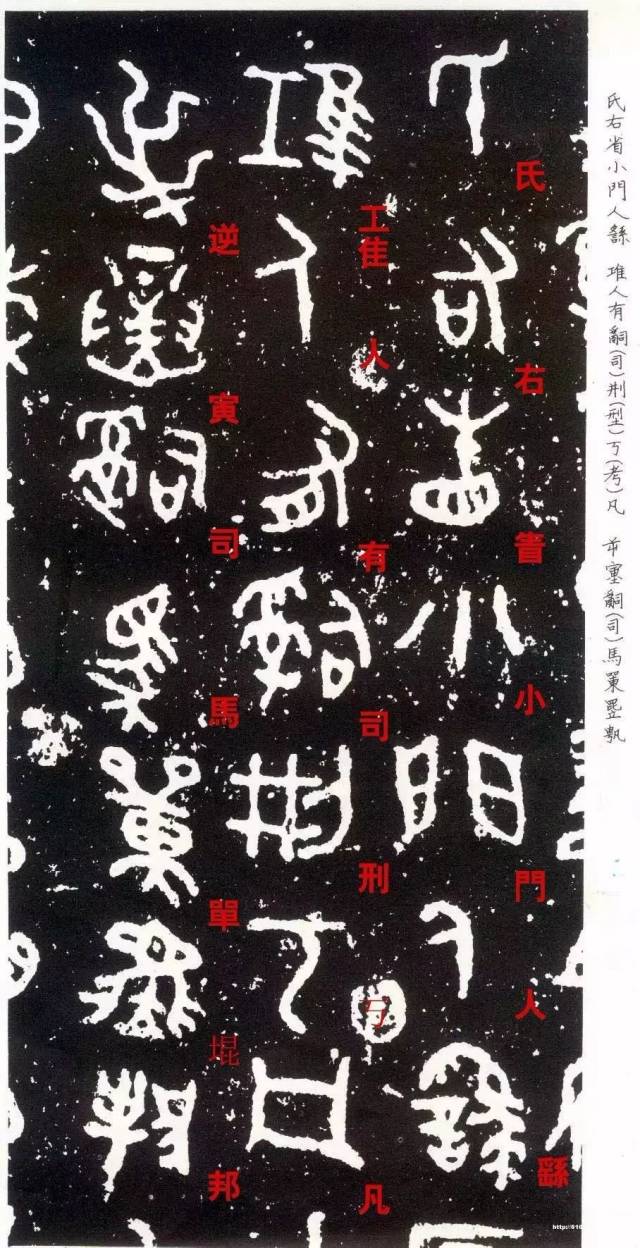 氏右省小門人繇 堆人有嗣(司)荆(型)丂(考)凡 嗣(司)馬
氏右眚小門人繇
工隹人有司刑丂凡
逆寅司馬單堒邦